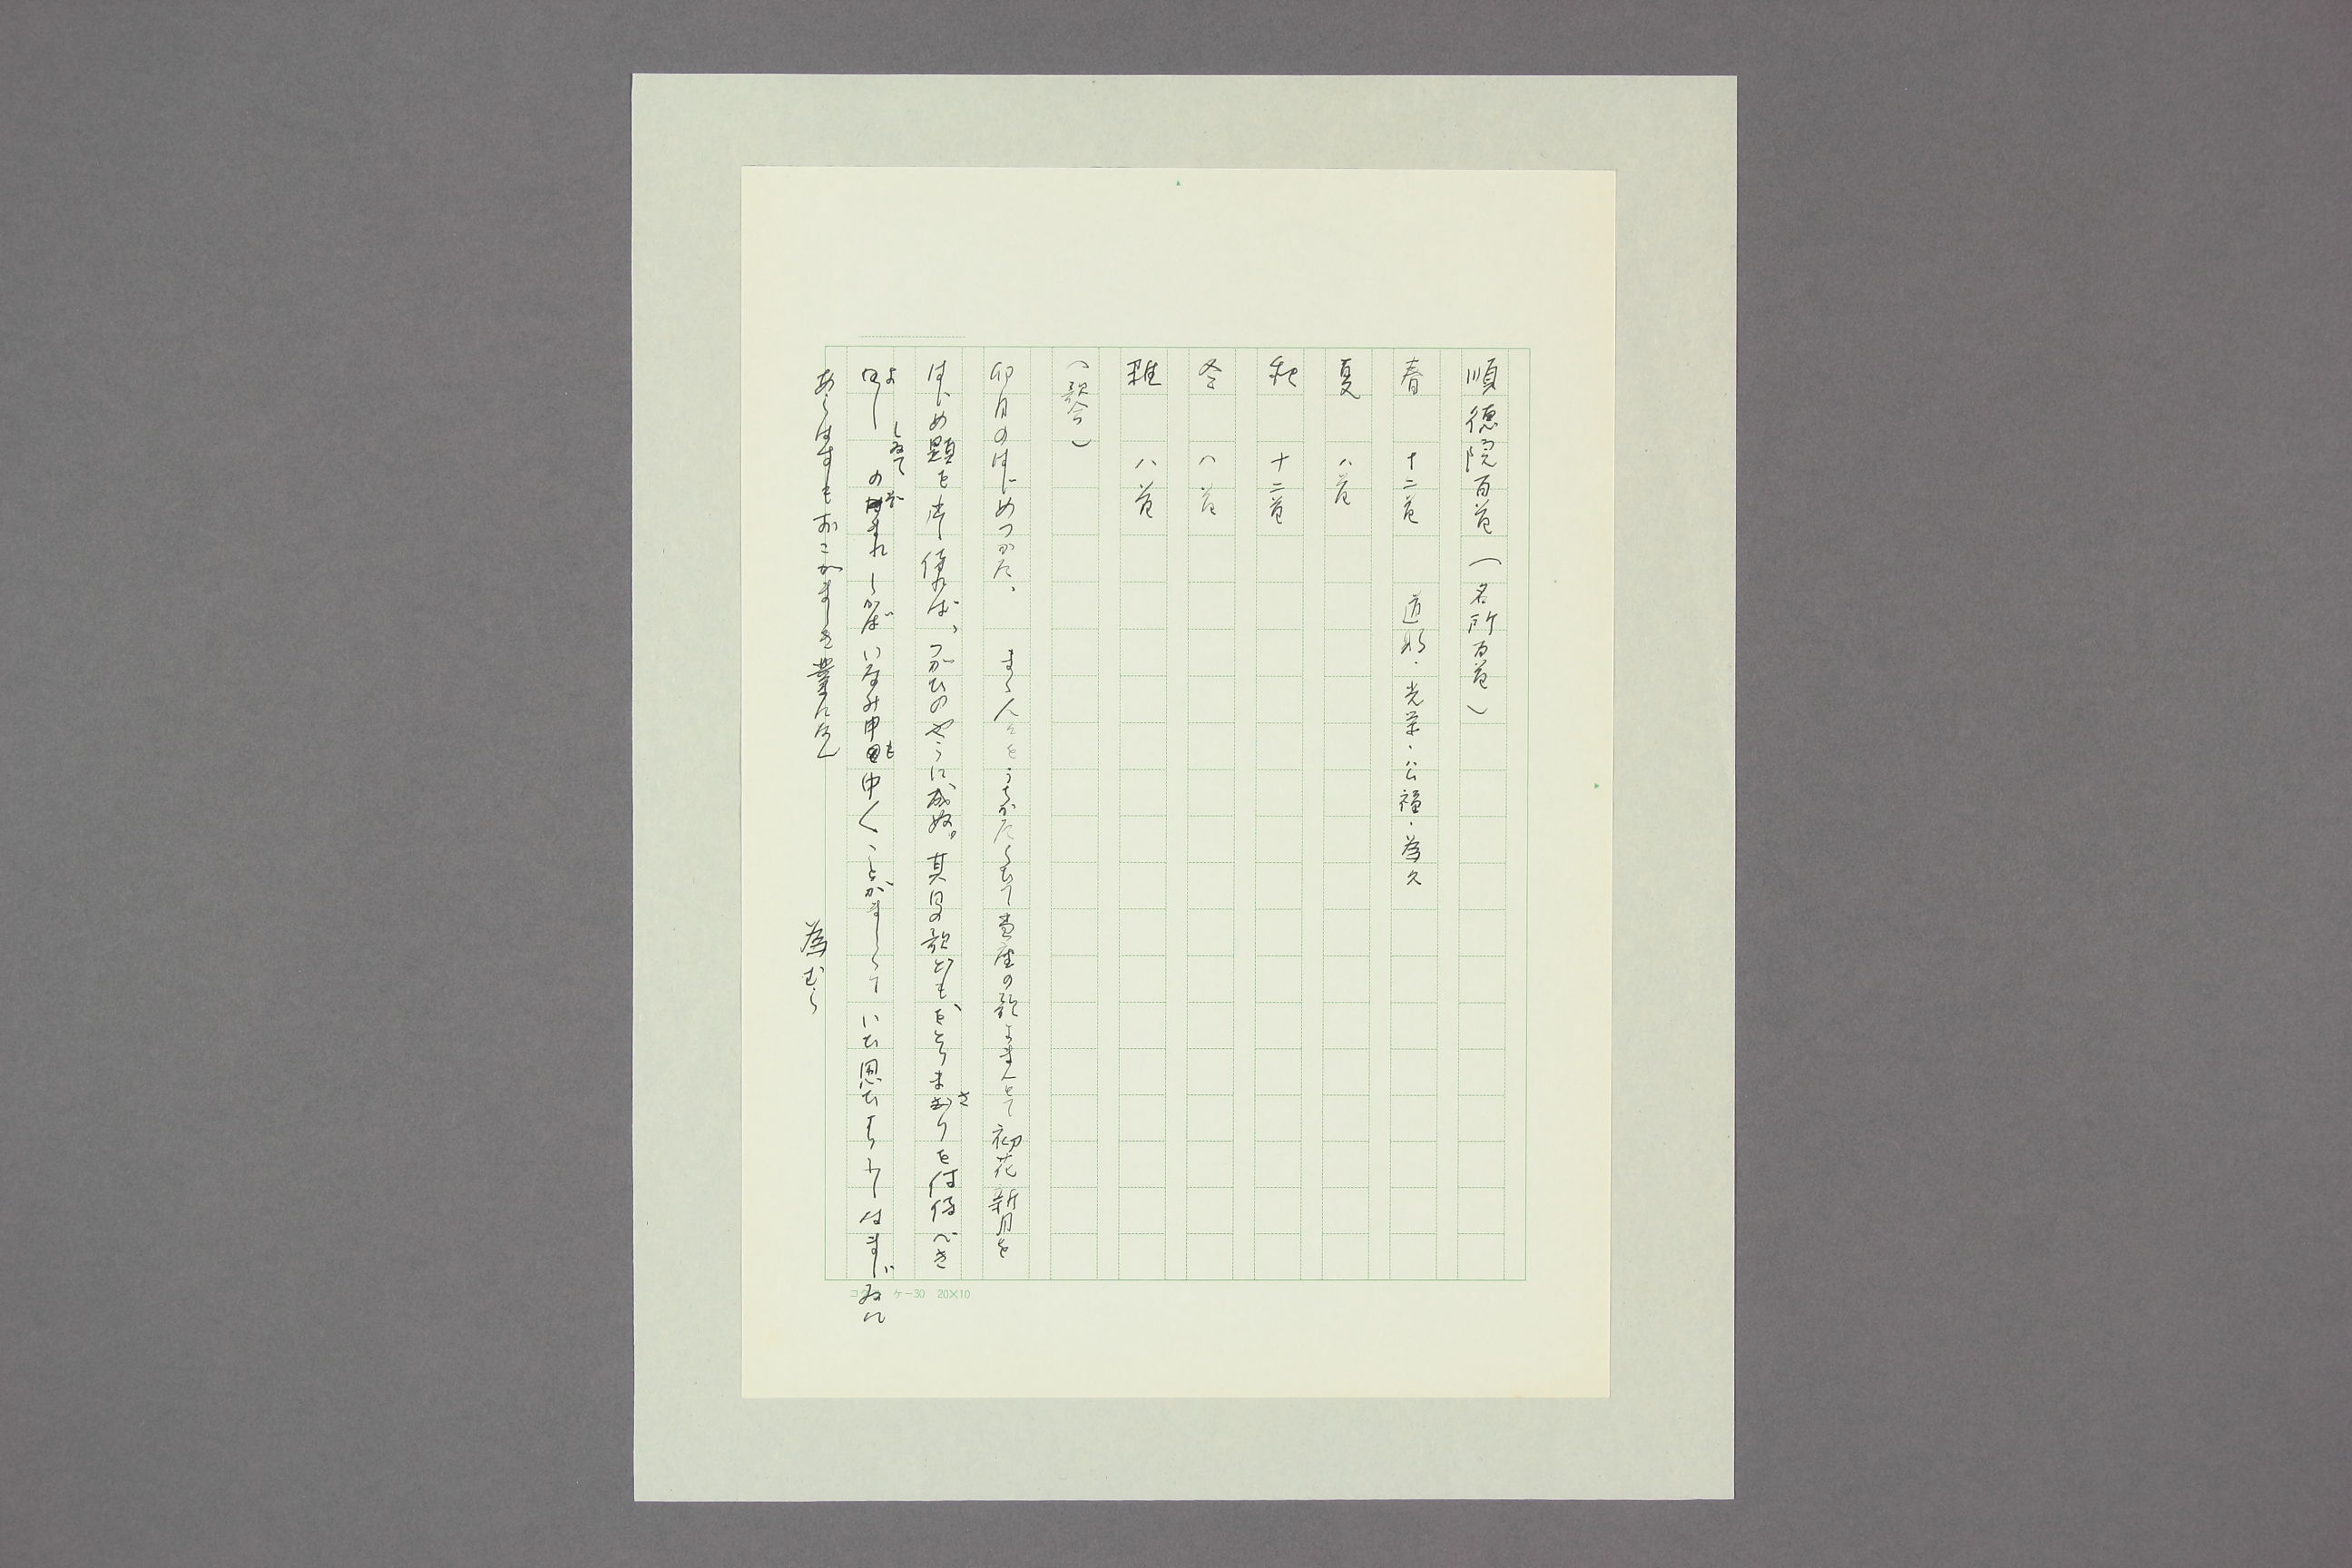 順徳院百首（名所百首）
春　十二首　道晃・光栄・公福・為久
夏　八首
秋　十二首
冬　八首
雑　八首
（歌合）
卯月のはじめつかた、まらうとをうちかたらひて当座の歌よまんとて初花新月を
はじめ題を出し侍れば、つがひのやうに成ぬ。其日の歌ども、をとりまさりを付侍べき
よし しゐての がまれしかばいなみ申も中〱ことがましくていひ思ひよりしはまじゐに
あらはすもおこがましき業になん
為むら
コクヨ　ケー30　20×10